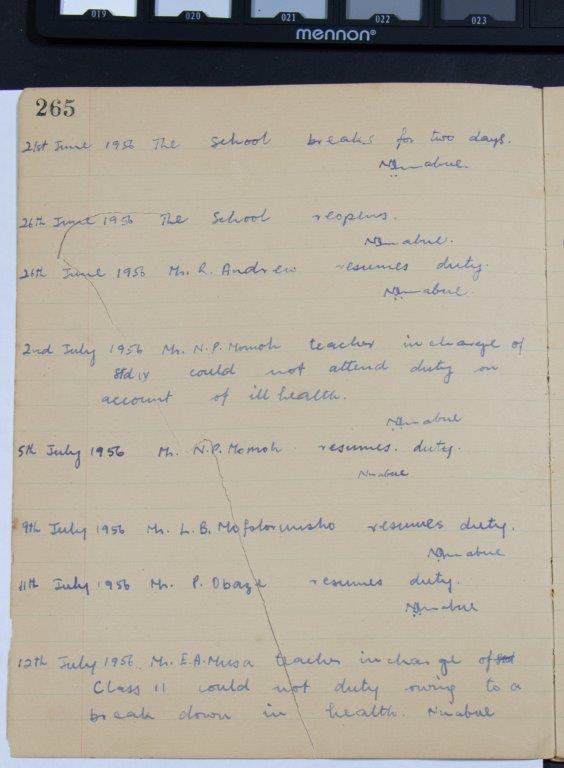 019 020 021 022 023
mennon®
265
21st June 1956 The School breaks for two days.
26th June 1956 The School reopens.
26th June 1956 Mr. R. Andrew resumes duty.
2nd July 1956 Mr. N.P. Momoh teacher in charge of
Std IV could not attend duty on
account of ill health.
5th July 1956 Mr. N.P. Momoh resumes. duty.
9th July 1956 Mr. L.B. resumes duty.
11th July 1956 Mr. P. Obaze resumes duty.
12th July 1956. Mr. E.A. Musa teacher in charge of
Class II could not duty owing to a
break down in health.